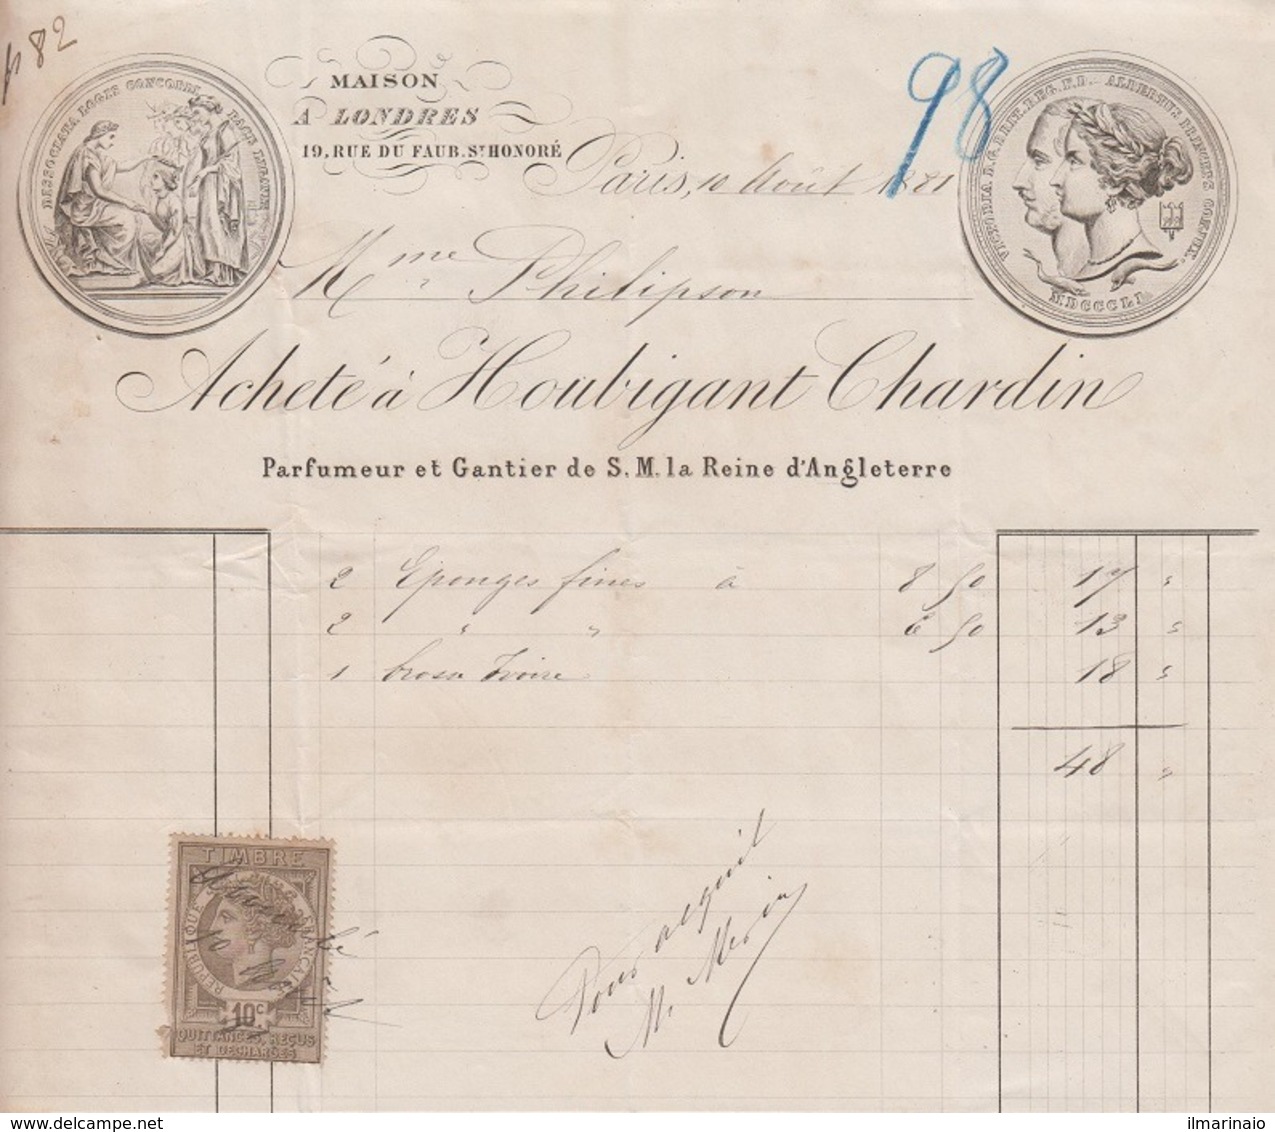 p 82
98
MAISON
A LONDRES
19, RUE DU FAUB. ST HONORÉ
DISSOCIATA LOCIS CONCORDI PACE LIGANTUR
VICTORIA D.G. BRIT. REG. F.D. ALBERTUS PRINCEPS CONJUX.
MDCCCLI.
Paris, 10 Août 1881
Mme Philipson
Acheté à Houbigant Chardin
Parfumeur et Gantier de S. M. la Reine d'Angleterre
2 Eponges fines à 8 50 17 "
2 " " 6 50 13 "
1 brosse Ivoire 18 "
48 "
TIMBRE
RÉPUBLIQUE FRANÇAISE
10 c.
QUITTANCES, REÇUS
ET DÉCHARGES
10 Août
Pour acquit
delcampe.net
ilmarinaio